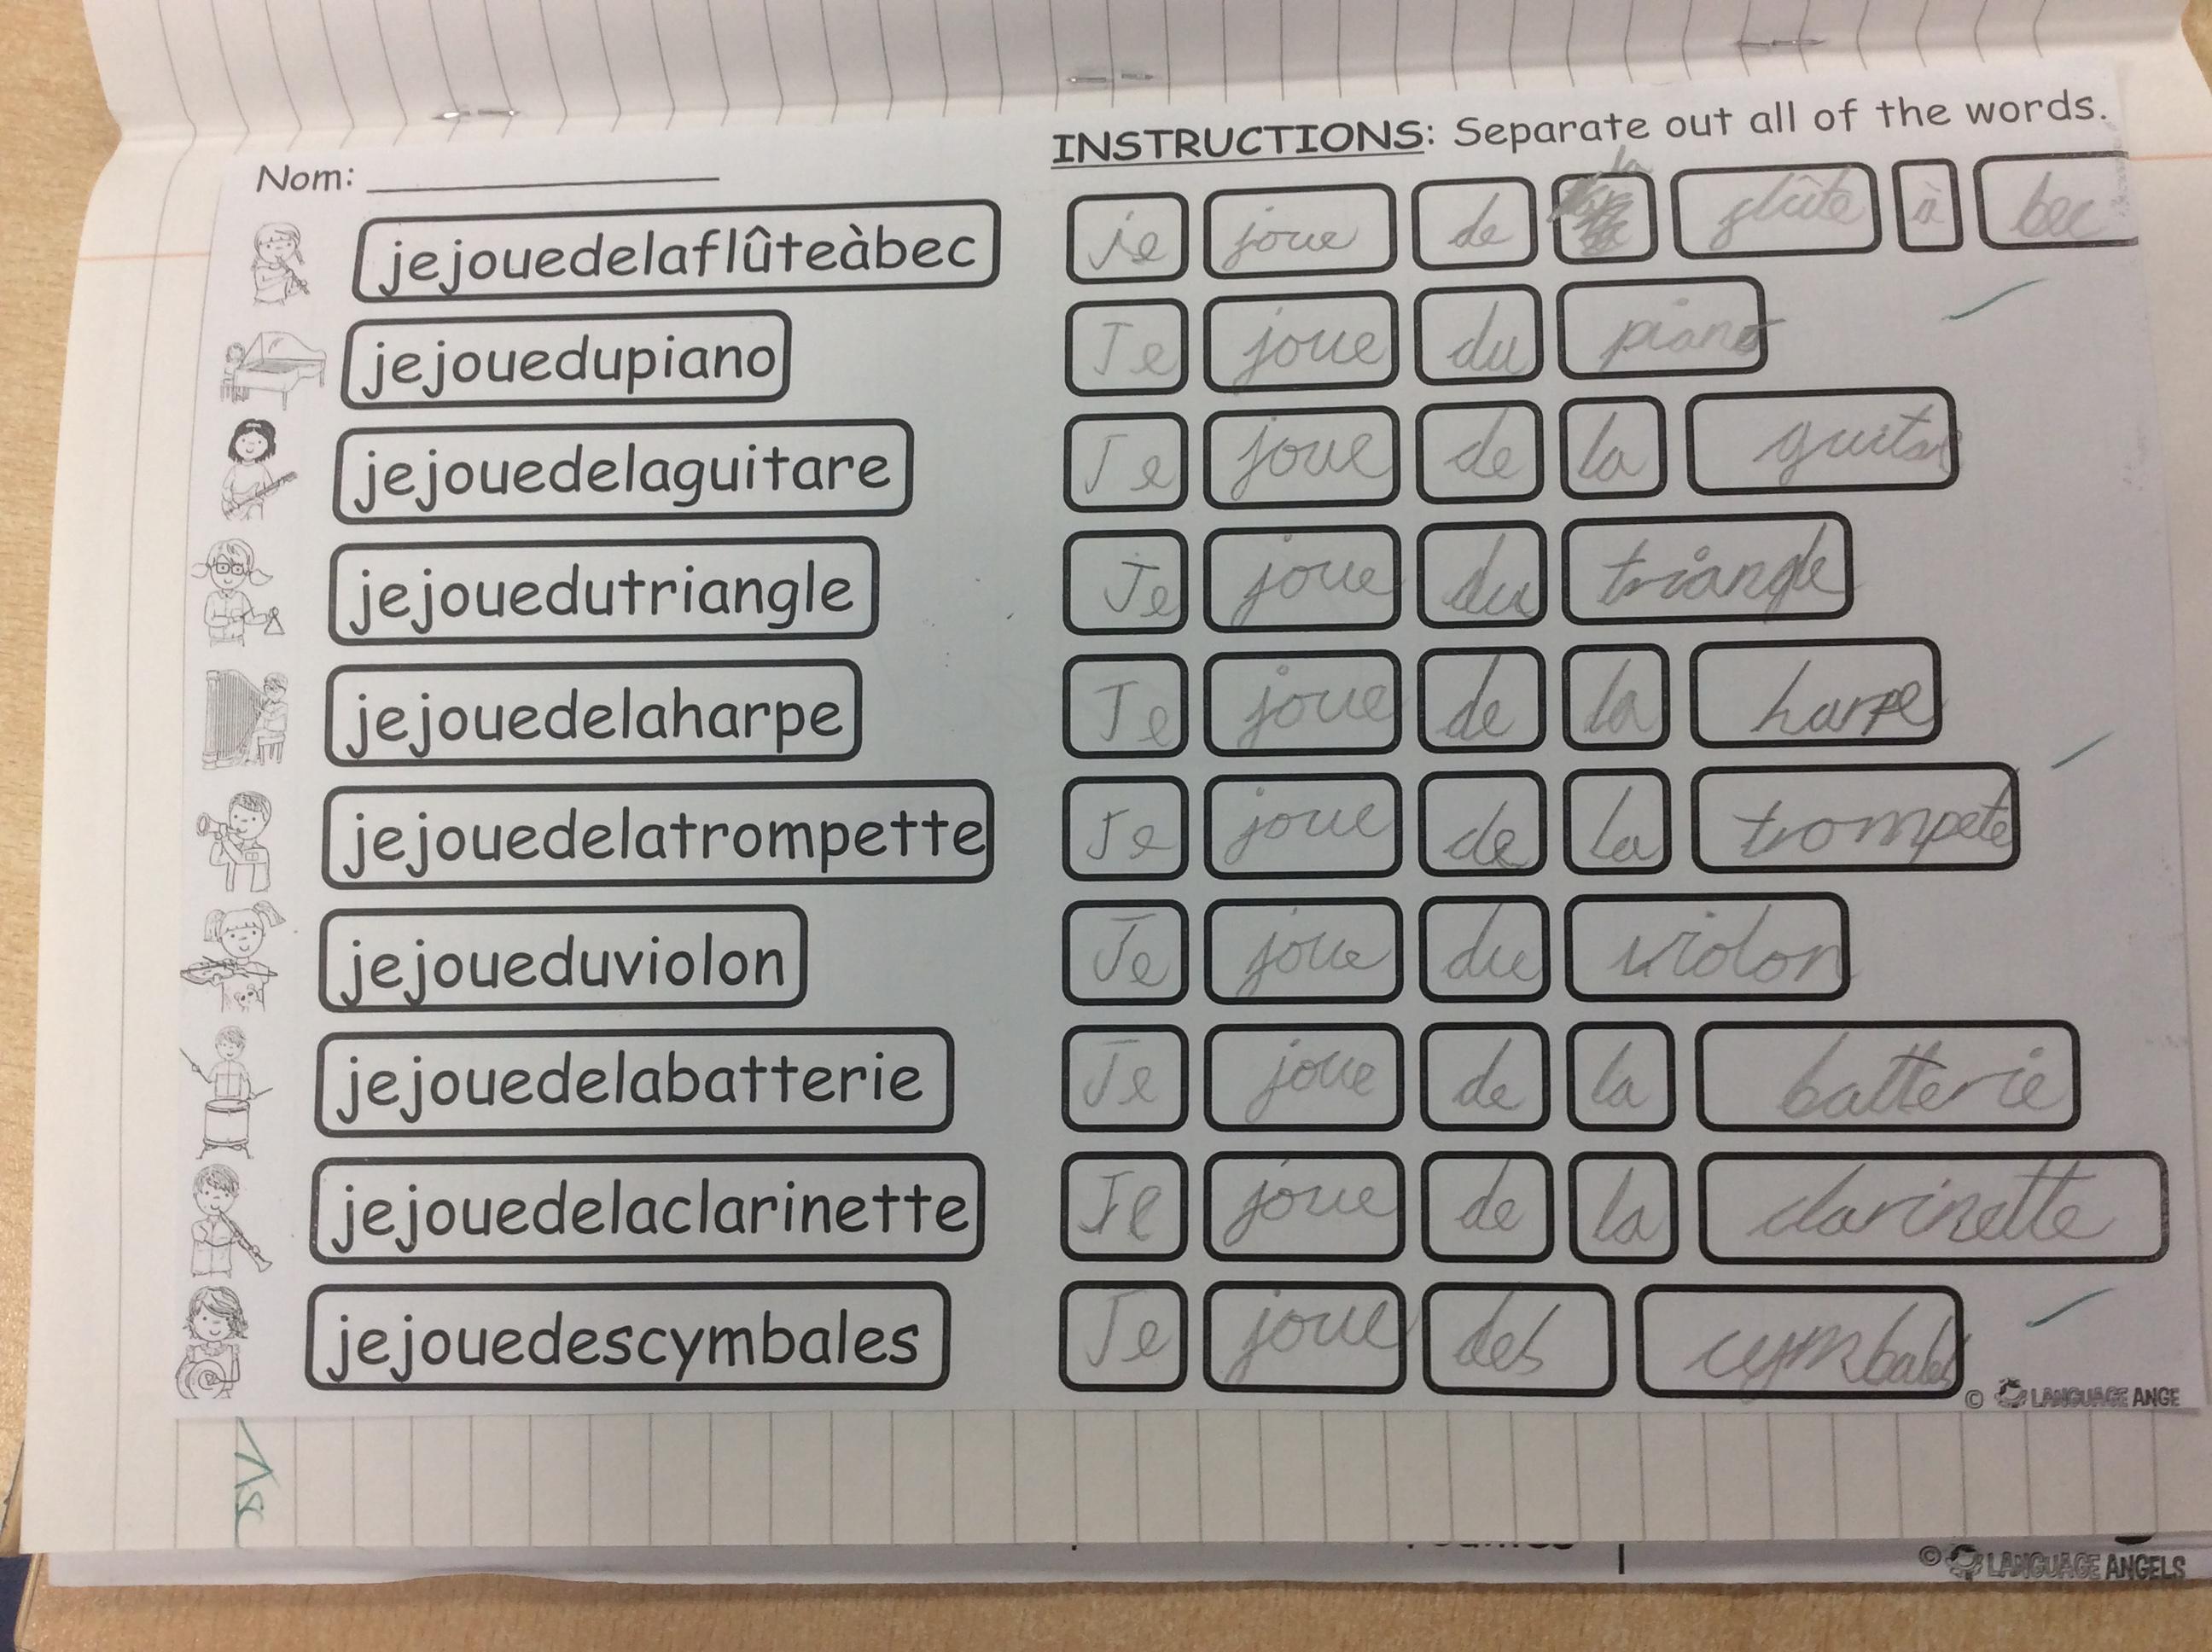 INSTRUCTIONS: Separate out all of the words.
Nom:
jejouedelaflûteàbec je joue de la flûte à bec
jejouedupiano Je joue du piano
jejouedelaguitare Je joue de la
jejouedutriangle Je joue du triangle
jejouedelaharpe Je joue de la harpe
jejouedelatrompette Je joue de la trompete
jejoueduviolon Je joue du violon
jejouedelabatterie Je joue de la batterie
jejouedelaclarinette Je joue de la clarinette
jejouedescymbales Je joue des cymbales
© LANGUAGE ANGE
© LANGUAGE ANGELS